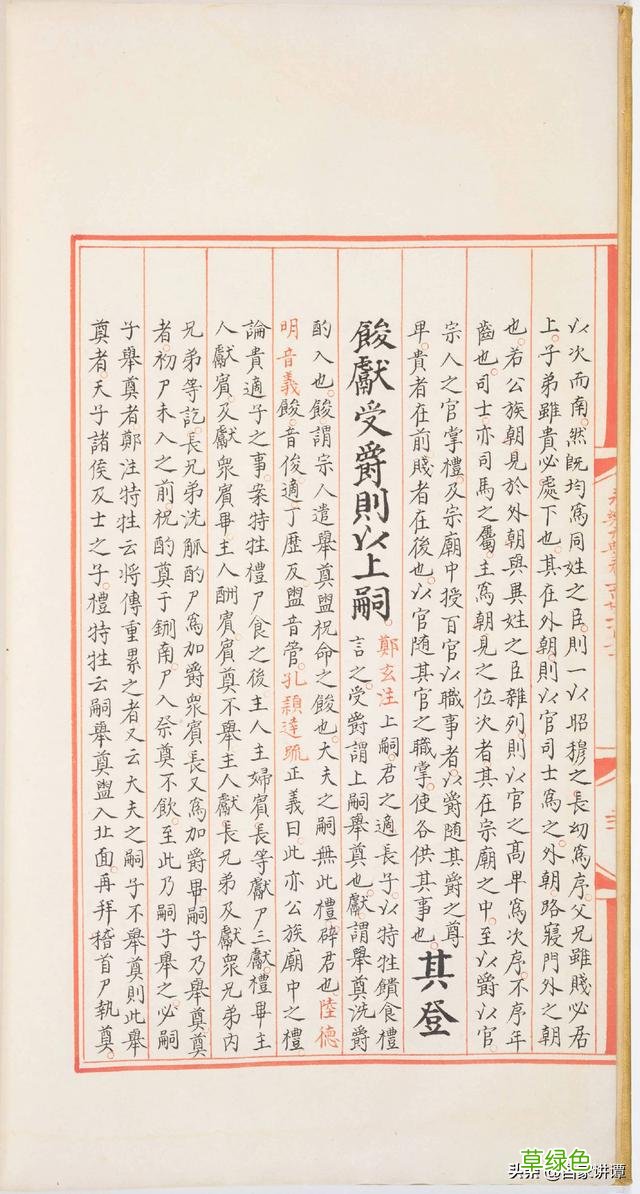 以次而南。然旣均爲同姓之臣。則一以昭穆之長幼爲序。父兄雖賤必居
上。子弟雖貴必處下也。其在外朝則以官司士爲之。外朝路寢門外之朝
也。若公族朝見於外朝。與異姓之臣雜列則以官之髙卑爲次序。不序年
齒也。司士亦司馬之屬。主爲朝見之位次者。其在宗廟之中。至以爵以官。
宗人之官掌禮及宗廟中授百官以職事者。以爵隨其爵之尊
卑。貴者在前賤者在後也。以官隨其官之職掌。使各供其事也。
其登
餕獻受爵則以上嗣。
鄭玄注上嗣。君之適長子。以特牲饋食禮
言之。受爵謂上嗣舉奠也。獻謂舉奠洗爵
酌入也。餕謂宗人遣舉奠盥祝命之餕也。大夫之嗣無此禮。辟君也。陸德
明音義餕。音俊。適丁歴反盥音管。孔穎達疏正義曰。此亦公族廟中之禮
論貴適子之事。案特牲禮尸食之後主人主婦賔長等獻尸三獻。禮畢主
人獻賔及獻衆賔畢。主人酬賔。賔奠不舉主人獻長兄弟及獻衆兄弟內
兄弟等訖。長兄弟洗觚酌尸爲加爵衆賔長又爲加爵畢嗣子乃舉奠奠
者。初尸未入之前祝酌奠于鉶南。尸入祭奠不飲。至此乃嗣子舉之。必嗣
子舉奠者鄭注特牲云將傳重累之者又云大夫之嗣子不舉奠則此舉
奠者。天子諸侯及士之子。禮特牲云嗣舉奠盥入北面。再拜稽首尸執奠。
草绿色
头条 @百家讲谭